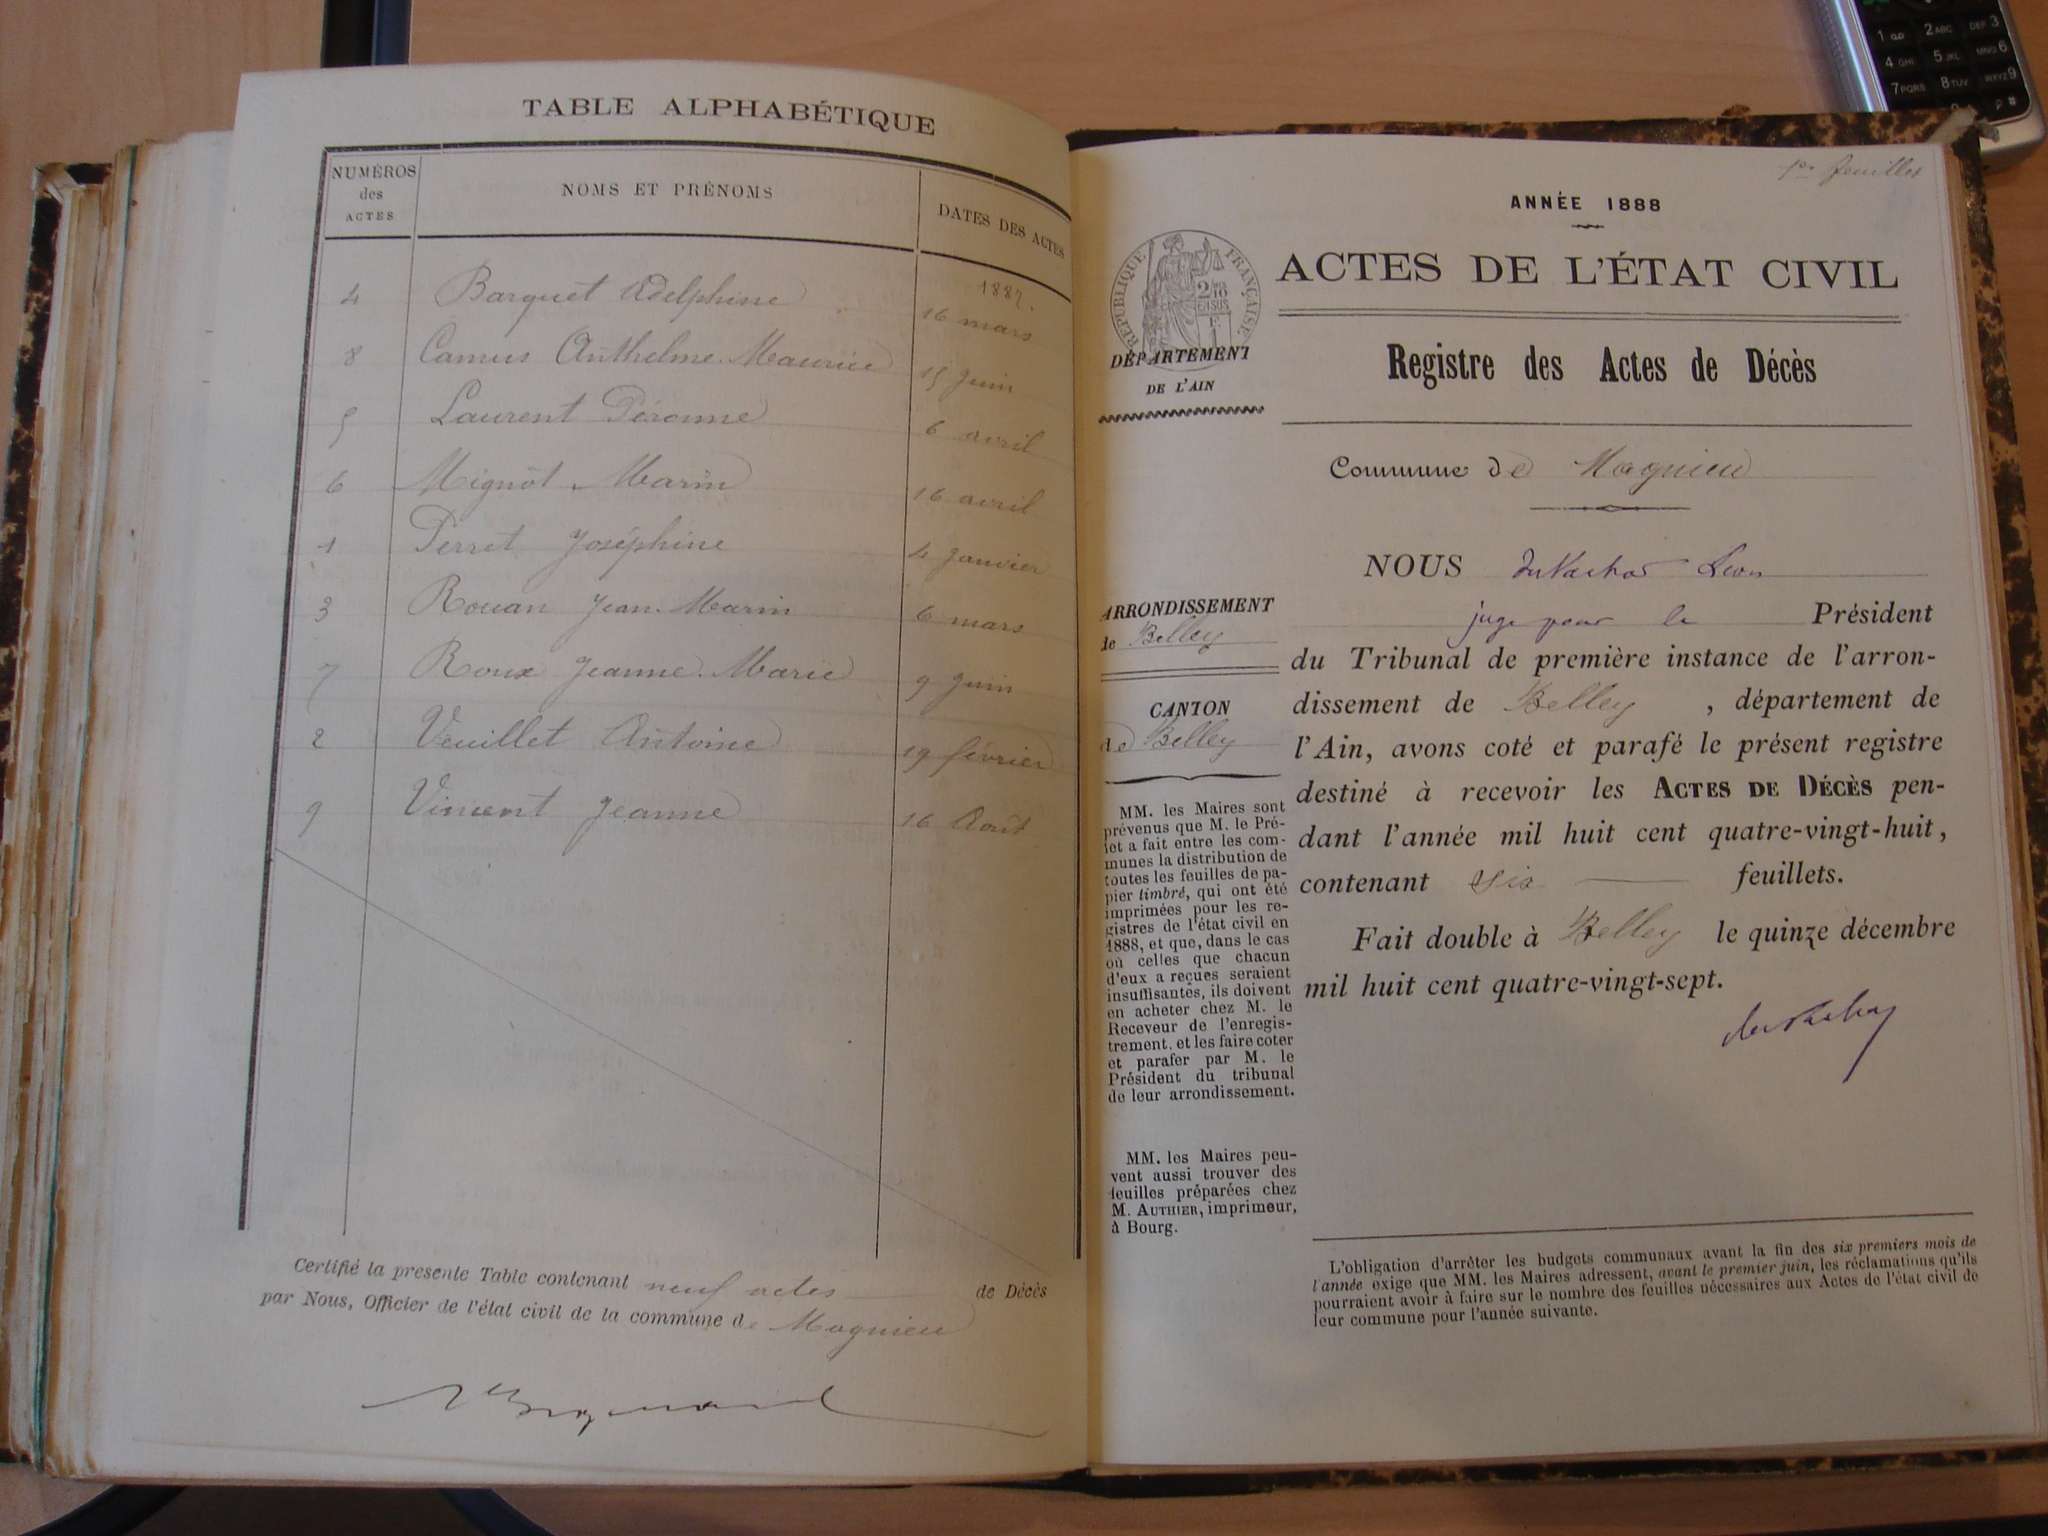 TABLE ALPHABÉTIQUE
NUMÉROS
des
ACTES
NOMS ET PRÉNOMS
DATES DES ACTES
1887.
4 Barquet Adelphine 16 mars
8 Camus Anthelme Maurice 15 Juin
5 Laurent Péronne 6 avril
6 Mignot Marin 16 avril
1 Perret Joséphine 4 Janvier
3 Rouan Jean-Marin 6 mars
7 Roux Jeanne-Marie 9 Juin
2 Veuillet Antoine 19 février
9 Vincent Jeanne 16 Août
Certifié la présente Table contenant neuf actes de Décès
par Nous, Officier de l'état civil de la commune de Magnieu
ANNÉE 1888
RÉPUBLIQUE FRANÇAISE
ACTES DE L'ÉTAT CIVIL
DÉPARTEMENT
DE L'AIN
Registre des Actes de Décès
Commune de Magnieu
ARRONDISSEMENT
de Belley
CANTON
de Belley
MM. les Maires sont
prévenus que M. le Pré-
fet a fait entre les com-
munes la distribution de
toutes les feuilles de pa-
pier timbré, qui ont été
imprimées pour les re-
gistres de l'état civil en
1888, et que, dans le cas
où celles que chacun
d'eux a reçues seraient
insuffisantes, ils doivent
en acheter chez M. le
Receveur de l'enregis-
trement, et les faire coter
et parafer par M. le
Président du tribunal
de leur arrondissement.
MM. les Maires peu-
vent aussi trouver des
feuilles préparées chez
M. AUTHIER, imprimeur,
à Bourg.
NOUS Léon
juge pour le Président
du Tribunal de première instance de l'arron-
dissement de Belley, département de
l'Ain, avons coté et parafé le présent registre
destiné à recevoir les ACTES DE DÉCÈS pen-
dant l'année mil huit cent quatre-vingt-huit,
contenant six feuillets.
Fait double à Belley le quinze décembre
mil huit cent quatre-vingt-sept.
L'obligation d'arrêter les budgets communaux avant la fin des six premiers mois de
l'année exige que MM. les Maires adressent, avant le premier juin, les réclamations qu'ils
pourraient avoir à faire sur le nombre des feuilles nécessaires aux Actes de l'état civil de
leur commune pour l'année suivante.